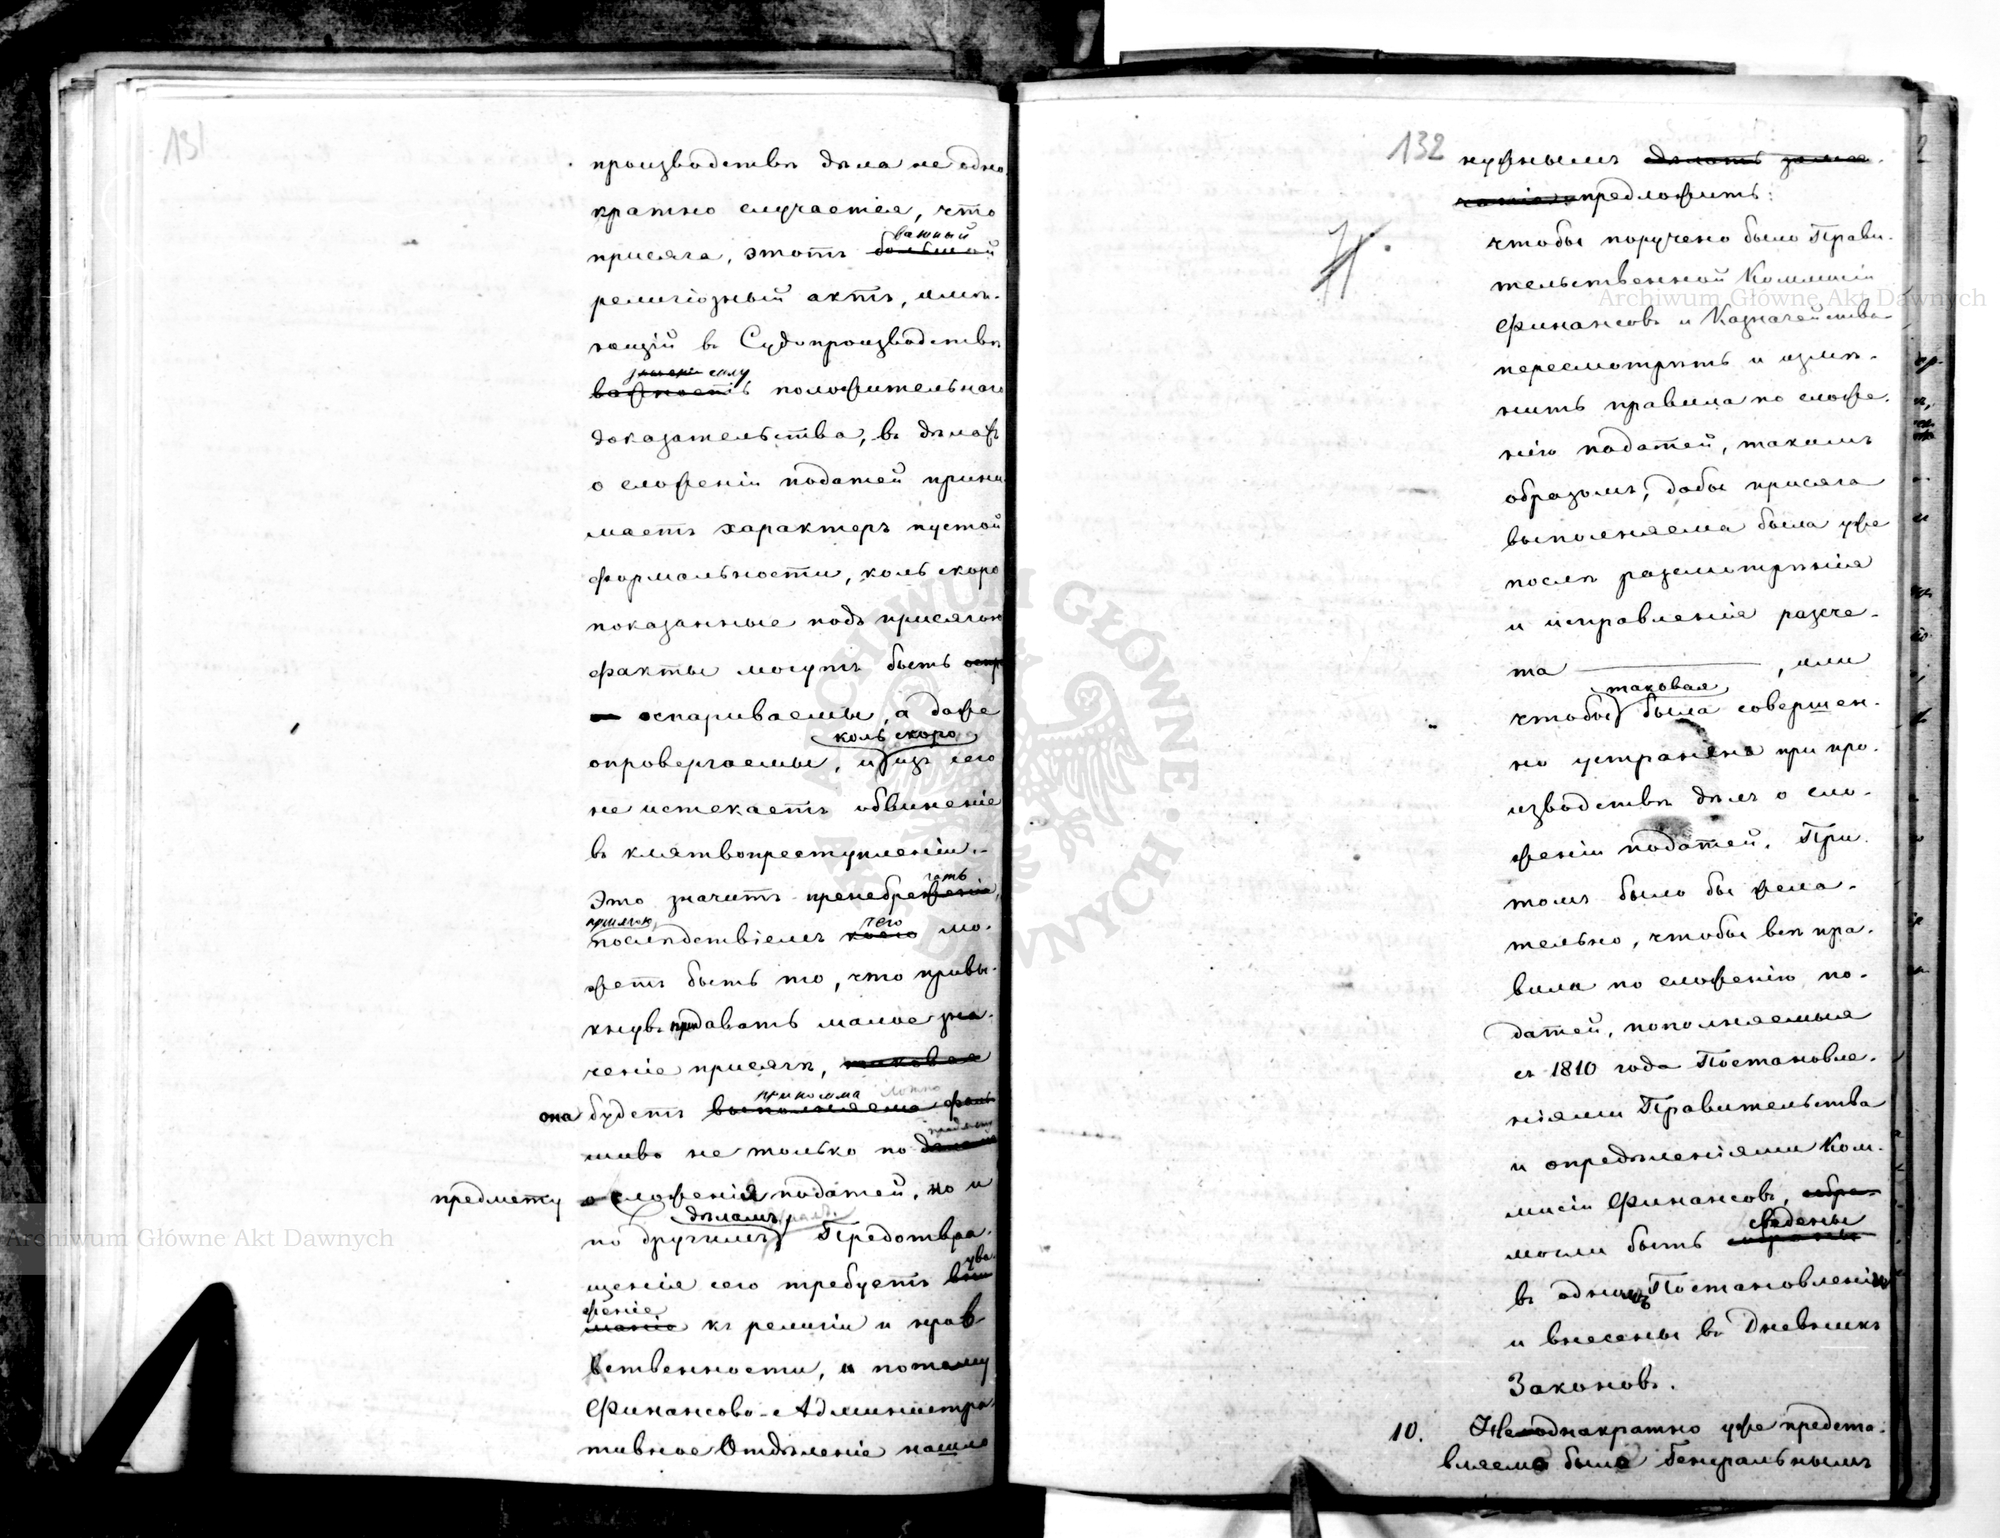 131
производствѣ дѣла не одно
кратно случается, что
важный
присяга, этотъ большой
религіозный актъ, имѣ-
ющій въ Судопроизводствѣ
значеніе силу
важность положительнаго
доказательства, въ дѣлахъ
о сложеніи податей прини
маетъ характеръ пустой
формальности, коль скоро
показанные подъ присягою
факты могутъ быть оспр
оспариваемы, а даже
коль скоро
опровергаемы, и изъ сего
не истекаетъ обвиненіе
въ клятвопреступленіи.-
гать
Это значитъ пренебреженіе,
чего
послѣдствіемъ коего мо-
жетъ быть то, что привы-
кнувъ придавать малое зна-
ченіе присягѣ, таковая
приносима ложно
она будетъ выполняема фаль
шиво не только по дѣламъ
предмету о сложенія податей, но и
дѣламъ
по другимъ Предотвра-
ува-
щеніе сего требуетъ вни
женіе
маніе къ религіи и нрав
ственности, и потому
Финансово-Администра
тивное Отдѣленіе нашло
132
нужнымъ дѣлать замѣ-
чаніе предложить:
чтобы поручено было Прави-
тельственной Коммисіи
Финансовъ и Казначейства
пересмотрѣть и измѣ-
нить правила по сложе-
нію податей, такимъ
образомъ, дабы присяга
выполняема была уже
послѣ разсмотрѣнія
и исправленія разче-
та ———, или
таковая
чтобы была совершен-
но устранена при про-
изводствѣ дѣлъ о сло-
женіи податей. При
томъ было бы жела-
тельно, чтобы всѣ пра-
вила по сложенію по-
датей, пополняемыя
съ 1810 года Постановле-
ніями Правительства
и опредѣленіями Ком-
мисіи Финансовъ, собра-
сведены
могли быть собраны
въ однимъ Постановленію
и внесены въ Дневникъ
Законовъ.
10. Неоднакратно уже предста-
вляемо было Генеральнымъ
Archiwum Główne Akt Dawnych
Archiwum Główne Akt Dawnych
ARCHIWUM GŁÓWNE AKT DAWNYCH